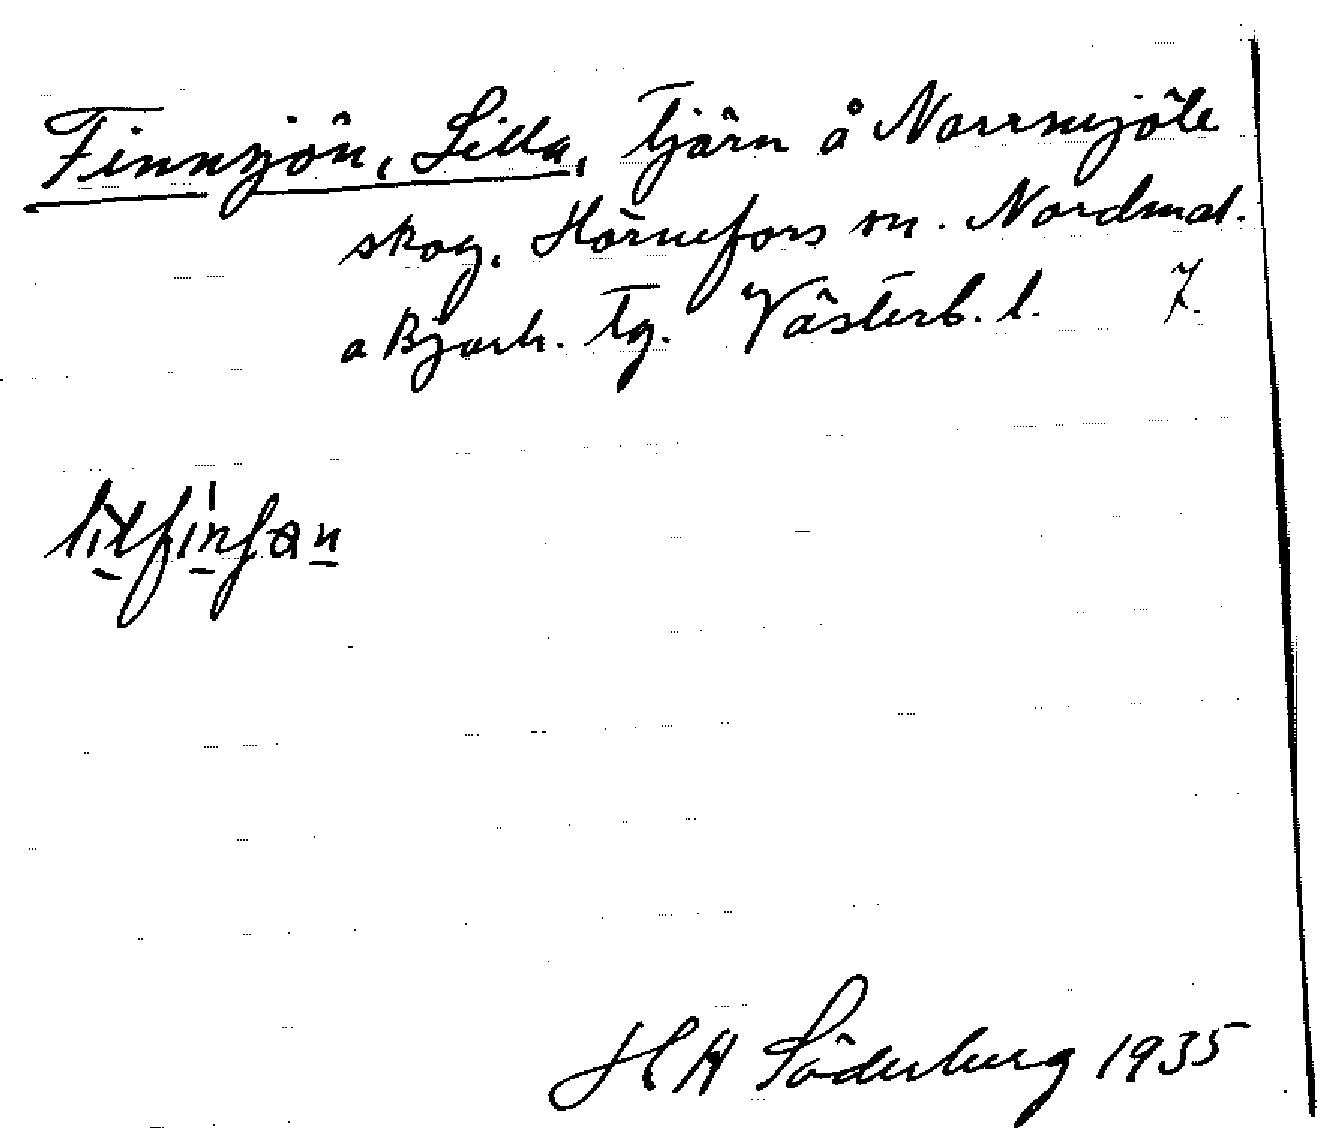 Finnsjön, Lilla, tjärn å Norrmjöle
skog, Hörnefors sn. Nordmal.
o Bjurh. tg. Västerb. l. 7.
H A Söderberg 1935